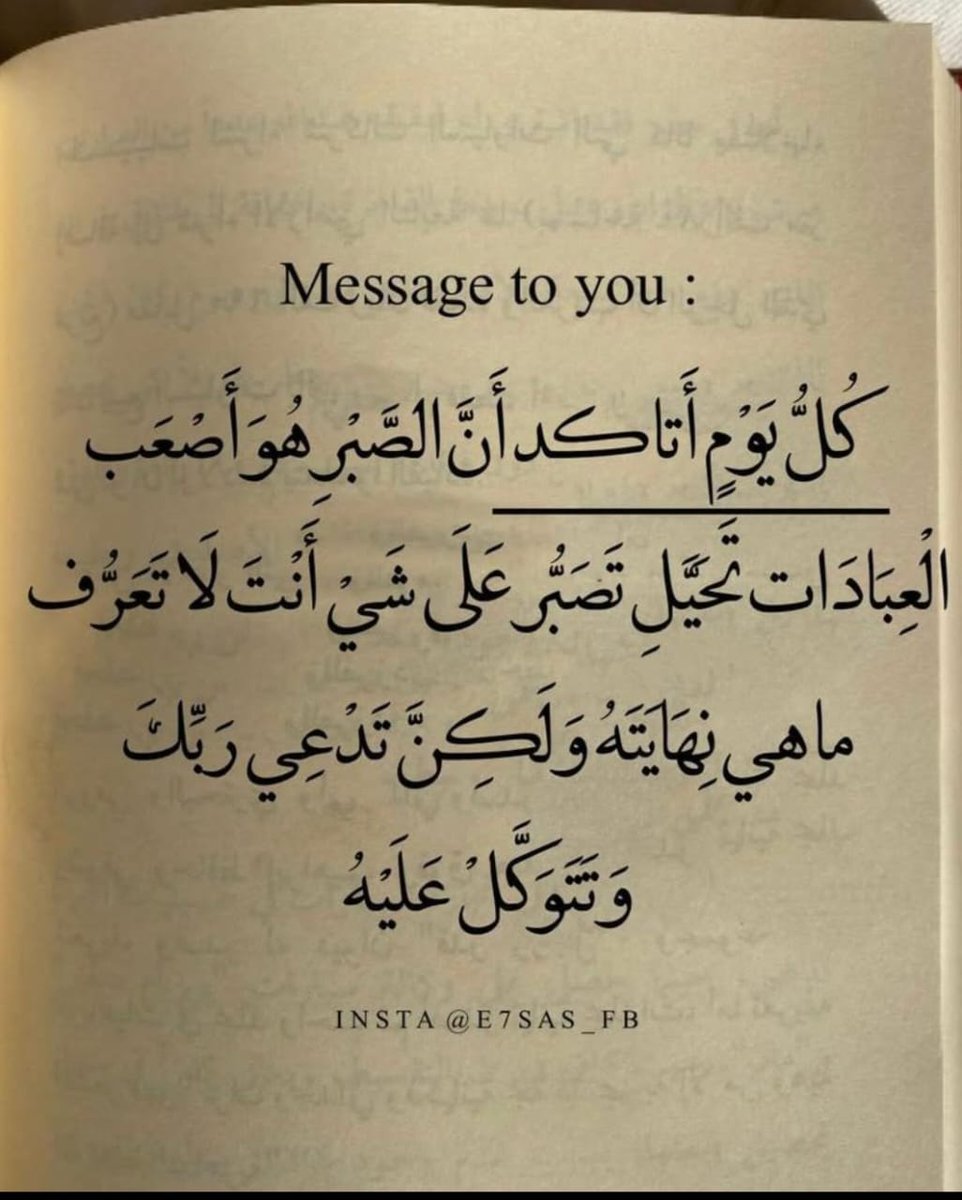 Message to you :
كُلُّ يَوْمٍ أَتاكد أَنَّ الصَّبْرِ هُوَ أَصْعَب
الْعِبَادَات تَحَيَّلِ تَصَبُّر عَلَى شَيْ أَنْتَ لَا تَعَرُّف
ماهي نِهَايَتَهُ وَلَكِنَّ تَدْعِي رَبِّكَ
وَتَتَوَكَّلْ عَلَيْهُ
INSTA @E7SAS_FB